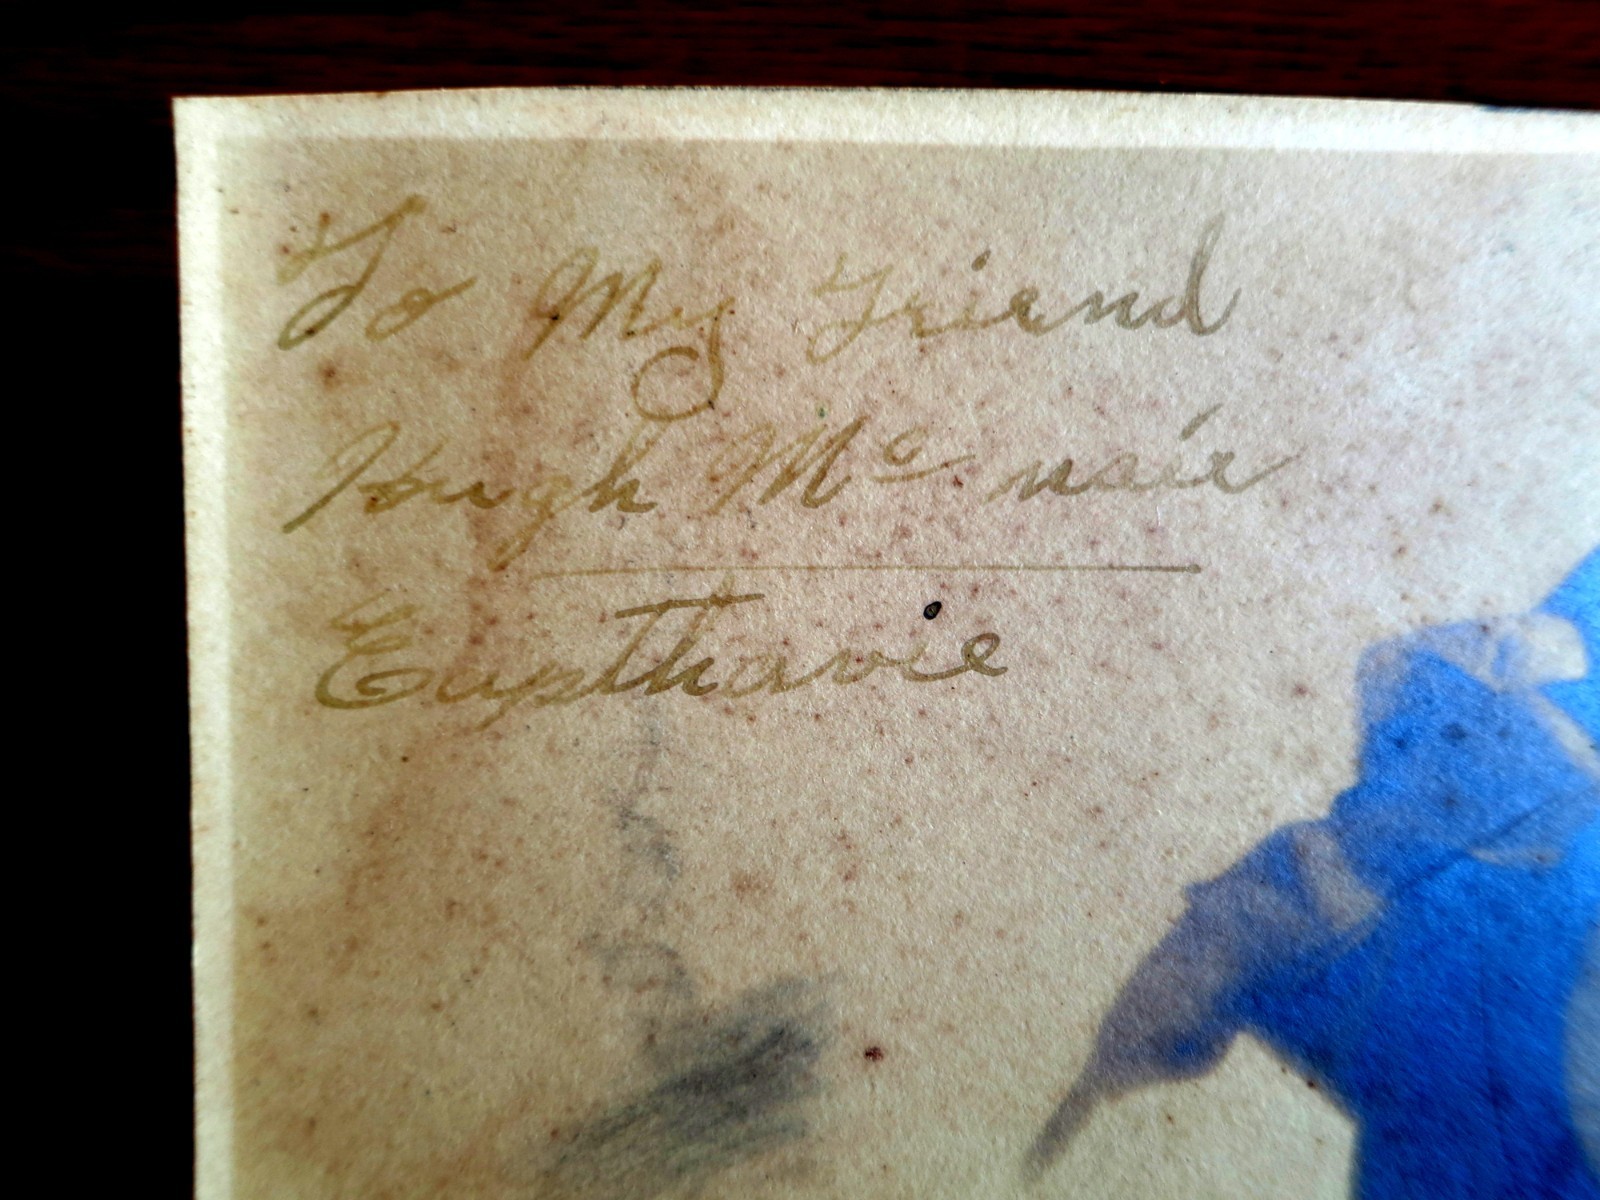 To My Friend
Hugh Mc nair
Eupthavie